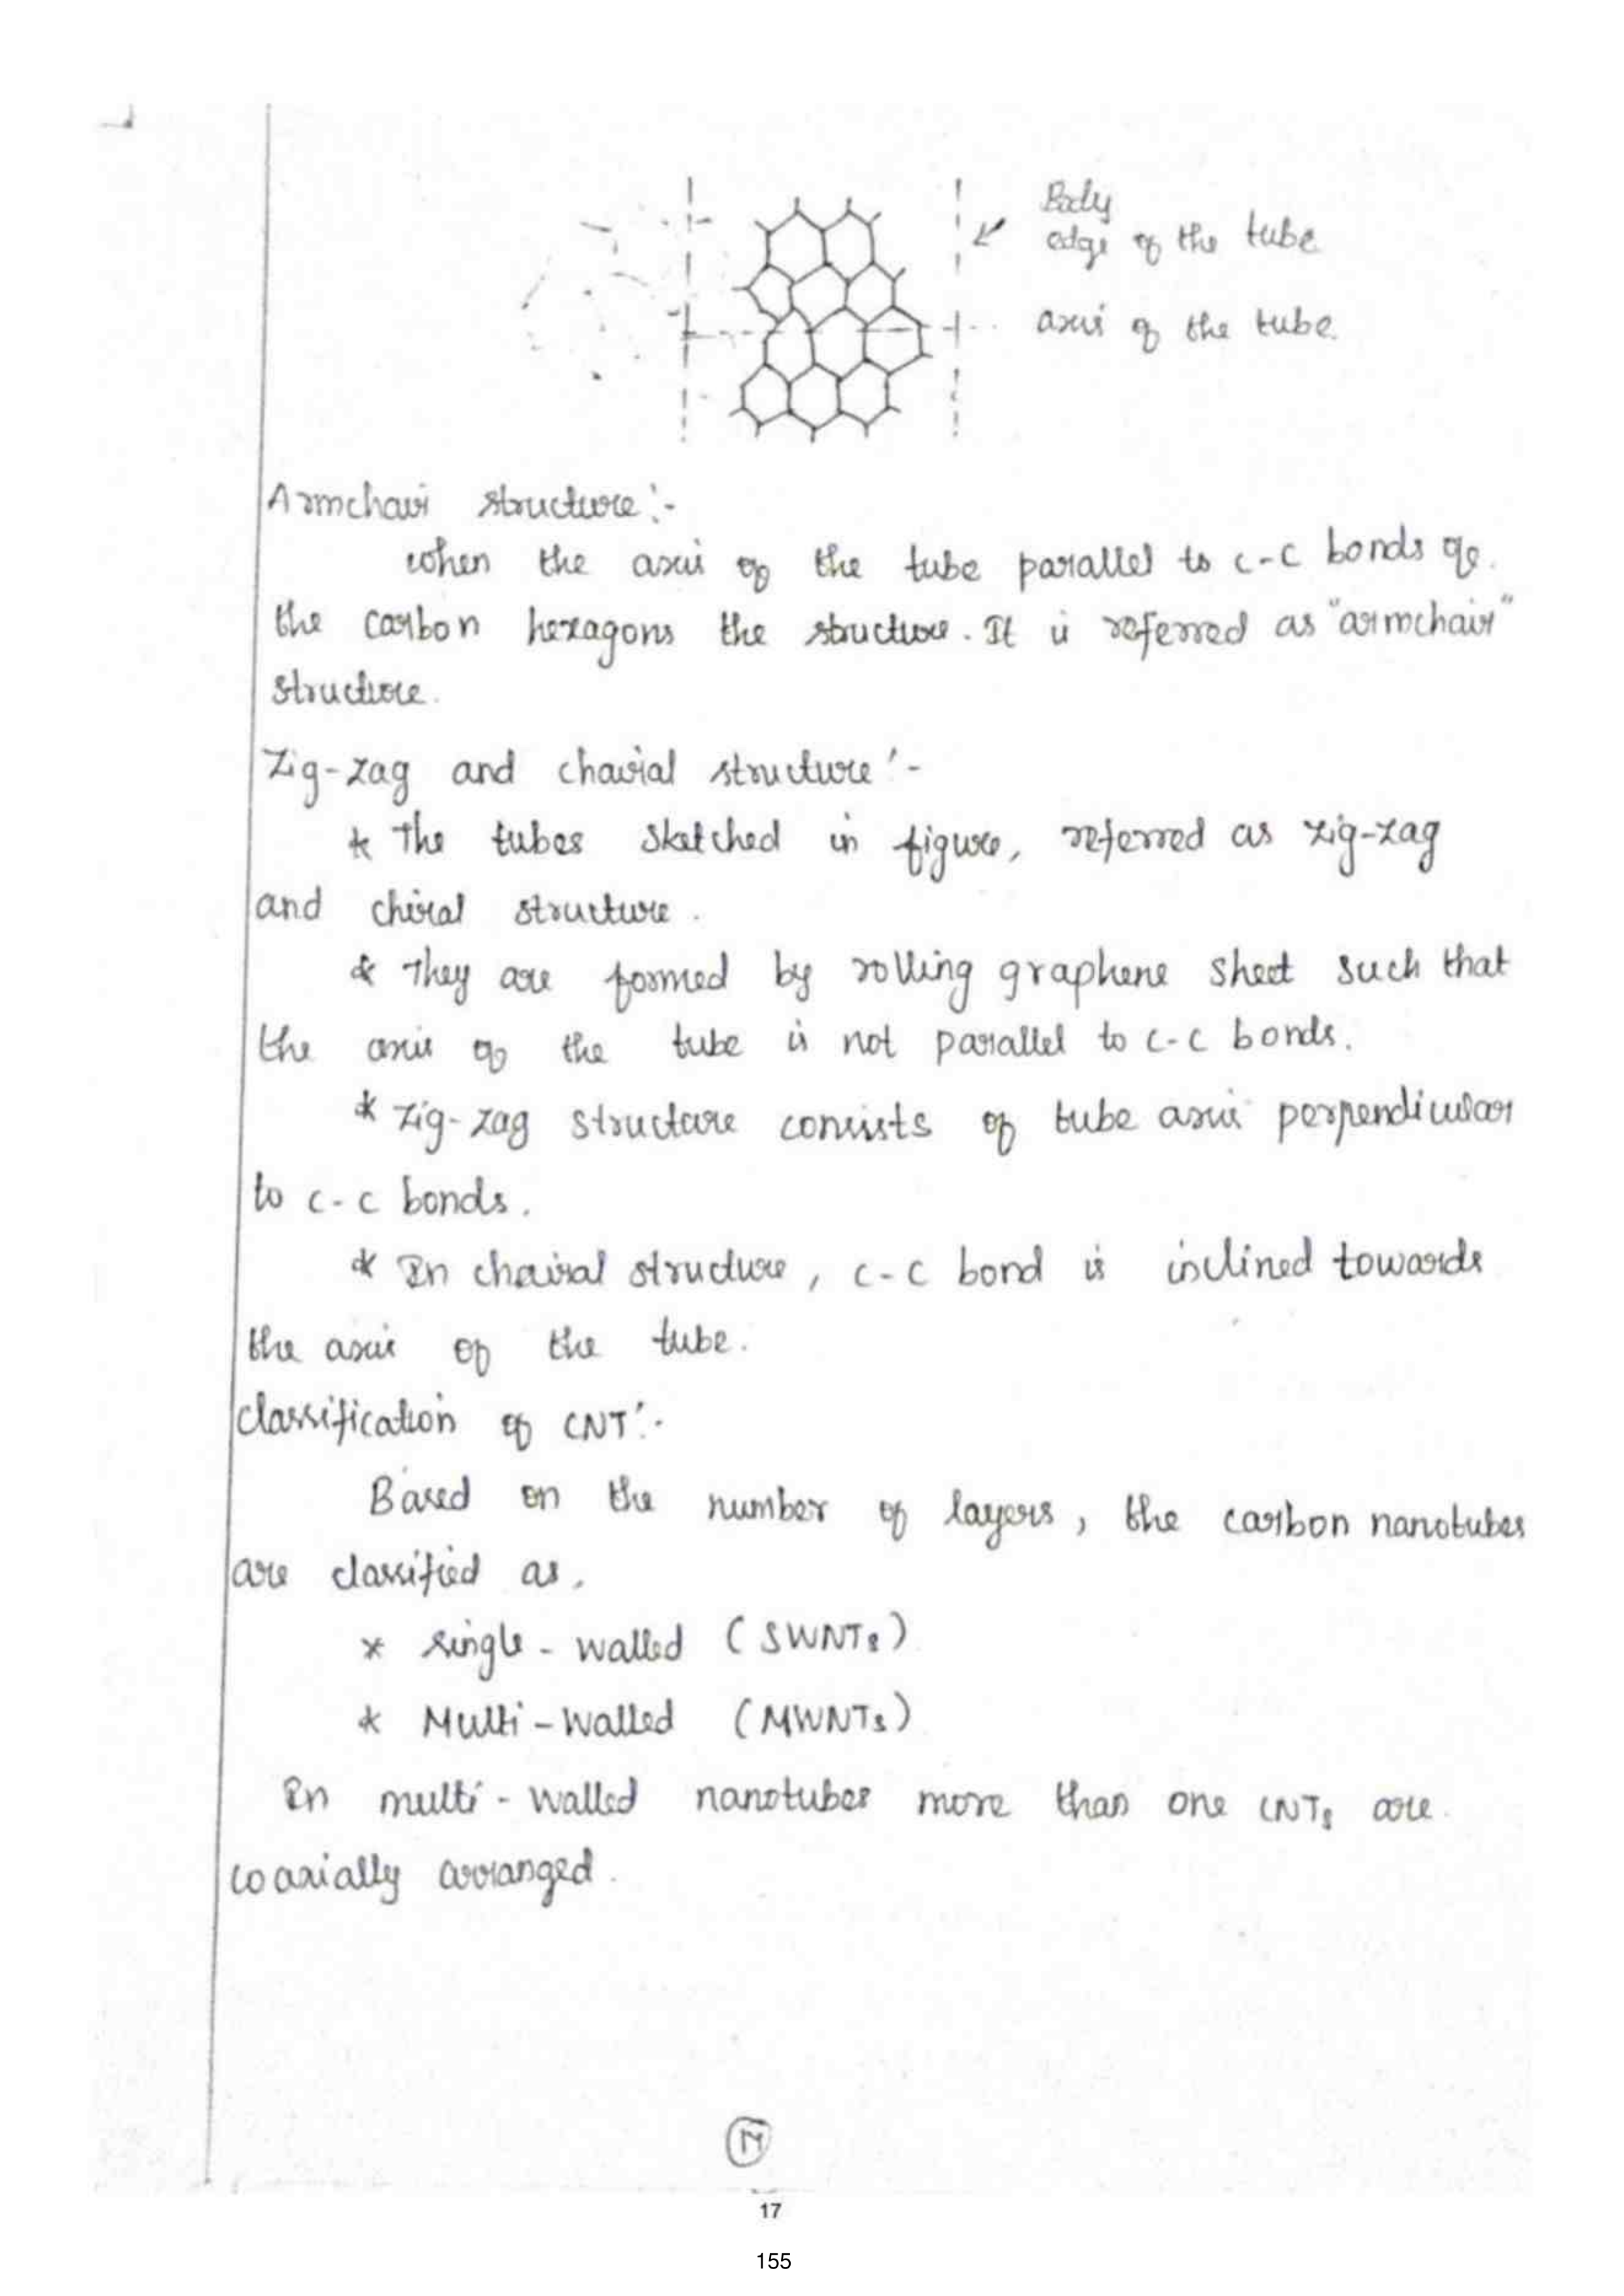 Body
edge of the tube
axis of the tube.
Armchair structure:-
when the axis of the tube parallel to c-c bonds of
the carbon hexagons the structure. It is referred as "armchair"
structure.
Zig-zag and chairal structure:-
* The tubes sketched in figure, referred as zig-zag
and chiral structure.
* They are formed by rolling graphene sheet such that
the axis of the tube is not parallel to c-c bonds.
* Zig-zag structure consists of tube axis perpendicular
to c-c bonds.
* In chairal structure, c-c bond is inclined towards
the axis of the tube.
classification of CNT:-
Based on the number of layers, the carbon nanotubes
are classified as,
* single-walled (SWNTs)
* Multi-walled (MWNTs)
In multi-walled nanotubes more than one CNTs are
coaxially arranged.
17
17
155